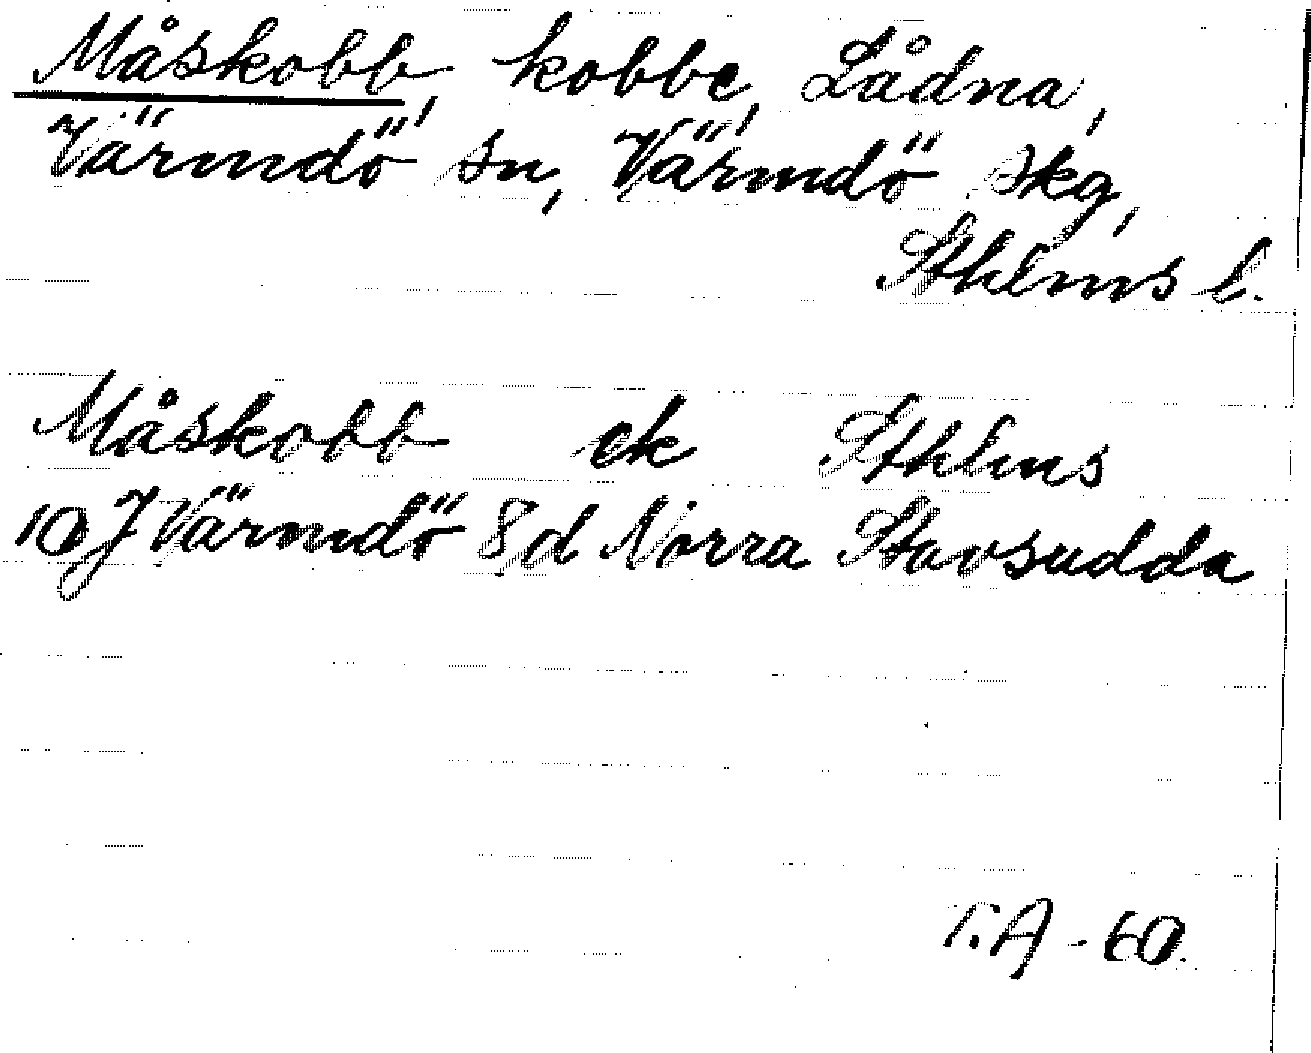 Måskobb, kobbe, Lådna,
Värmdö sn, Värmdö skg,
Sthlms l.
Måskobb ek Sthlms
10 J Värmdö 8d Norra Stavsudda
T.A - 60